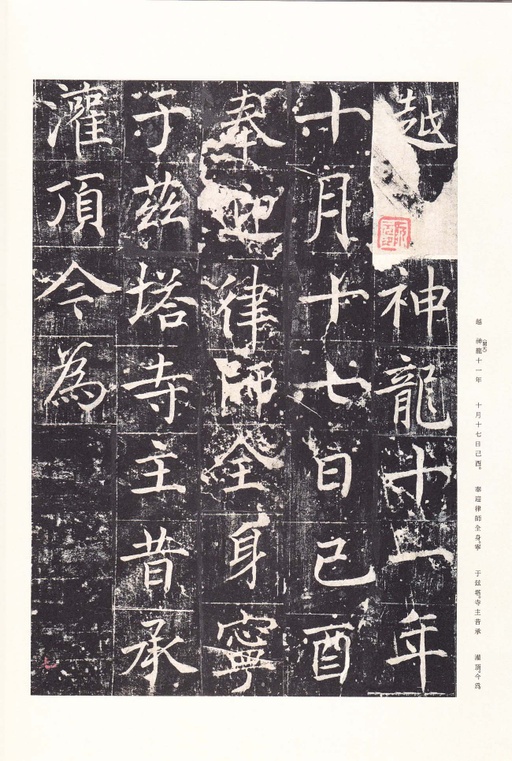 越神龍十一年
十月十七日己酉
奉迎律師全身寧
于茲塔寺主昔承
灌頂今為
越 神龍十一年 十月十七日己酉。 奉迎律師全身寧 于玆塔。寺主昔承 灌頂。今爲